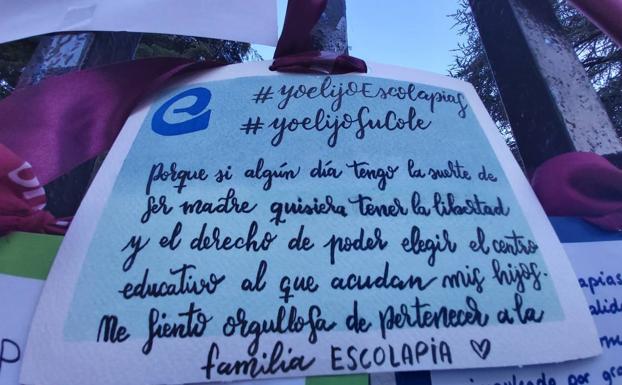 e
#yoelijoEscolapias
#yoelijosuCole
Porque si algún día tengo la suerte de
ser madre quisiera tener la libertad
y el derecho de poder elegir el centro
educativo al que acudan mis hijos.
Me siento orgullosa de pertenecer a la
familia ESCOLAPIA ♡
por